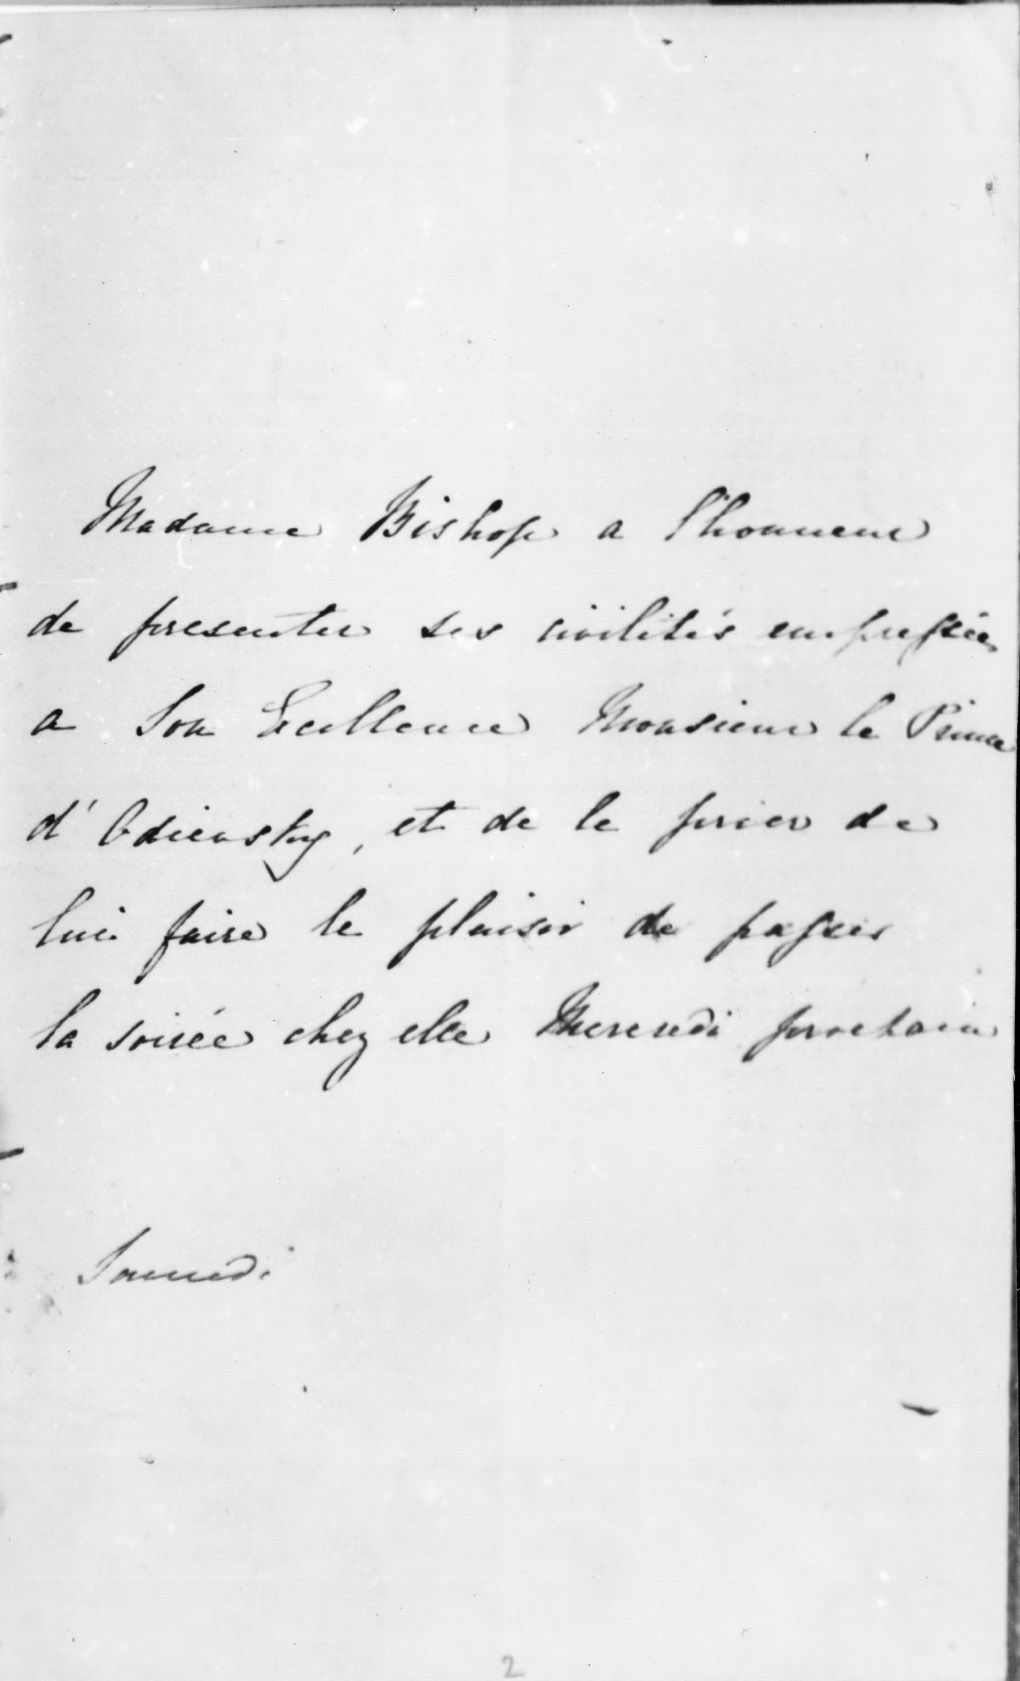 Madame Bishop a l'honneur
de presenter ses civilités empressées
a Son Excellence Monsieur le Prince
d'Odieosky, et de le prier de
lui faire le plaisir de passer
la soirée chez elle Mercredi prochain
Samedi
2